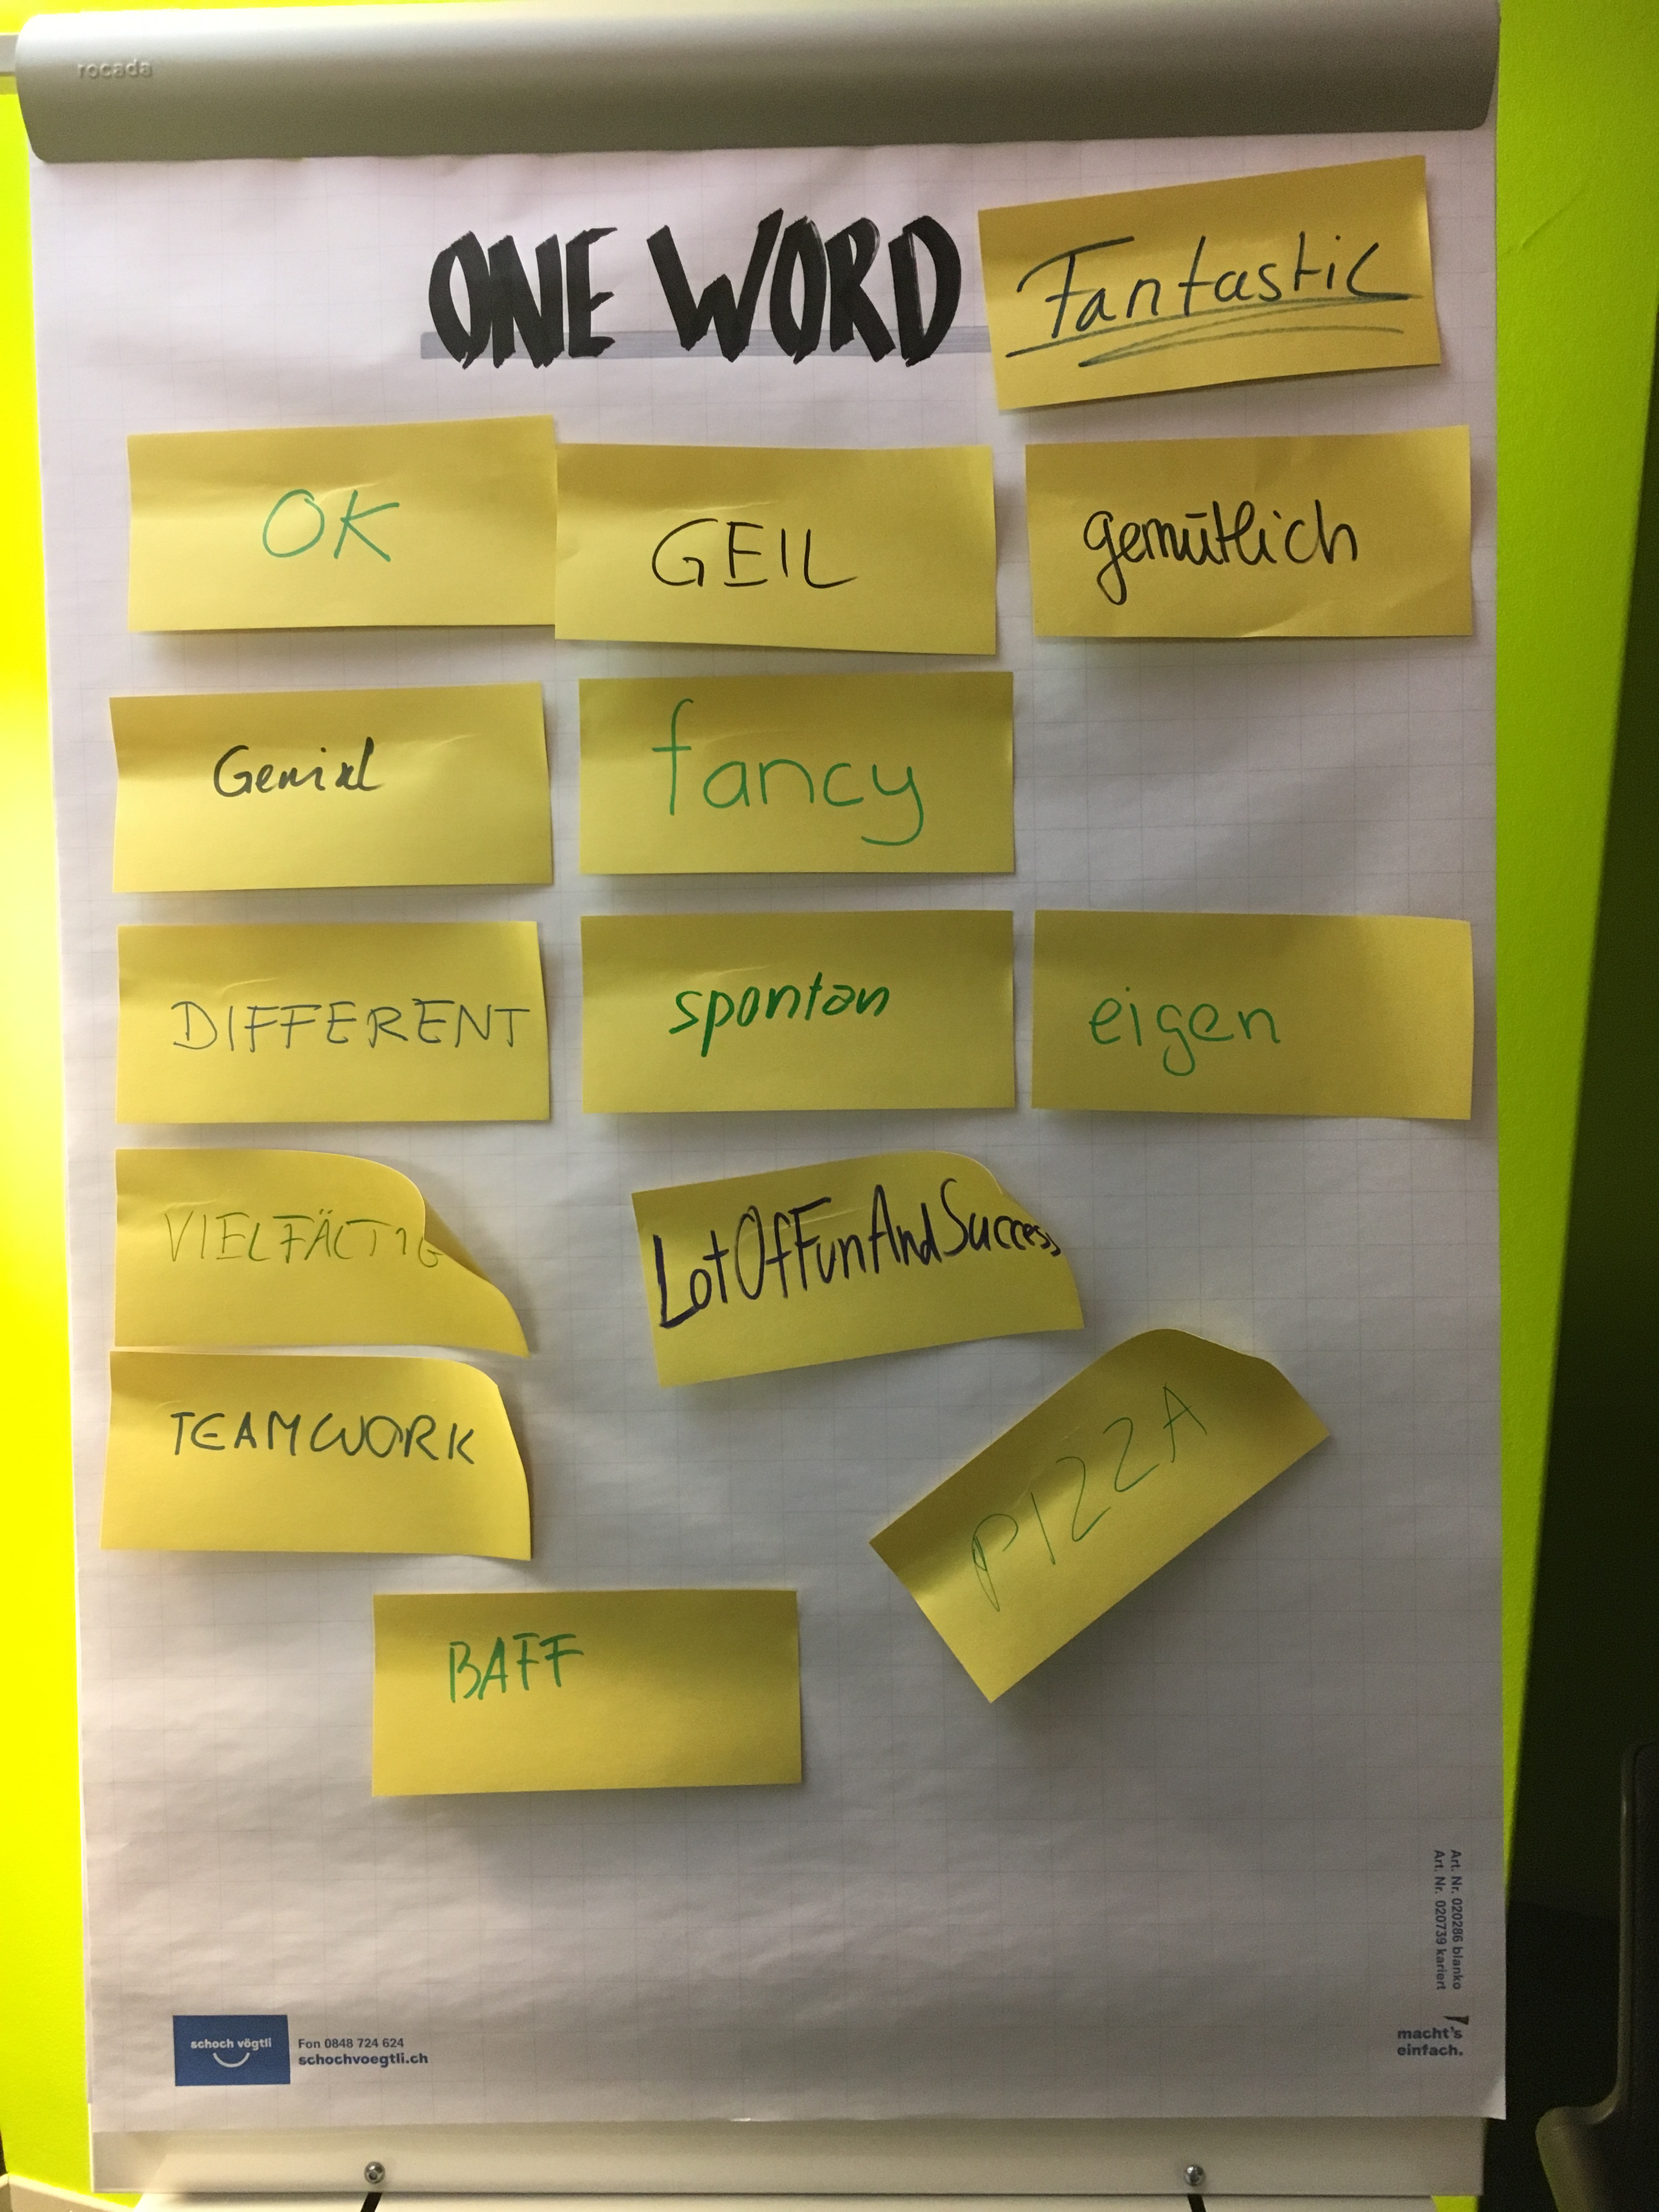 rocada
ONE WORD
Fantastic
OK
GEIL
gemütlich
Genial
fancy
DIFFERENT
spontan
eigen
VIELFÄLTIG
LotOfFunAndSuccess
TEAMWORK
PIZZA
BAFF
Art. Nr. 020286 blanko
Art. Nr. 020739 kariert
schoch vögtli
Fon 0848 724 624
schochvoegtli.ch
macht's
einfach.